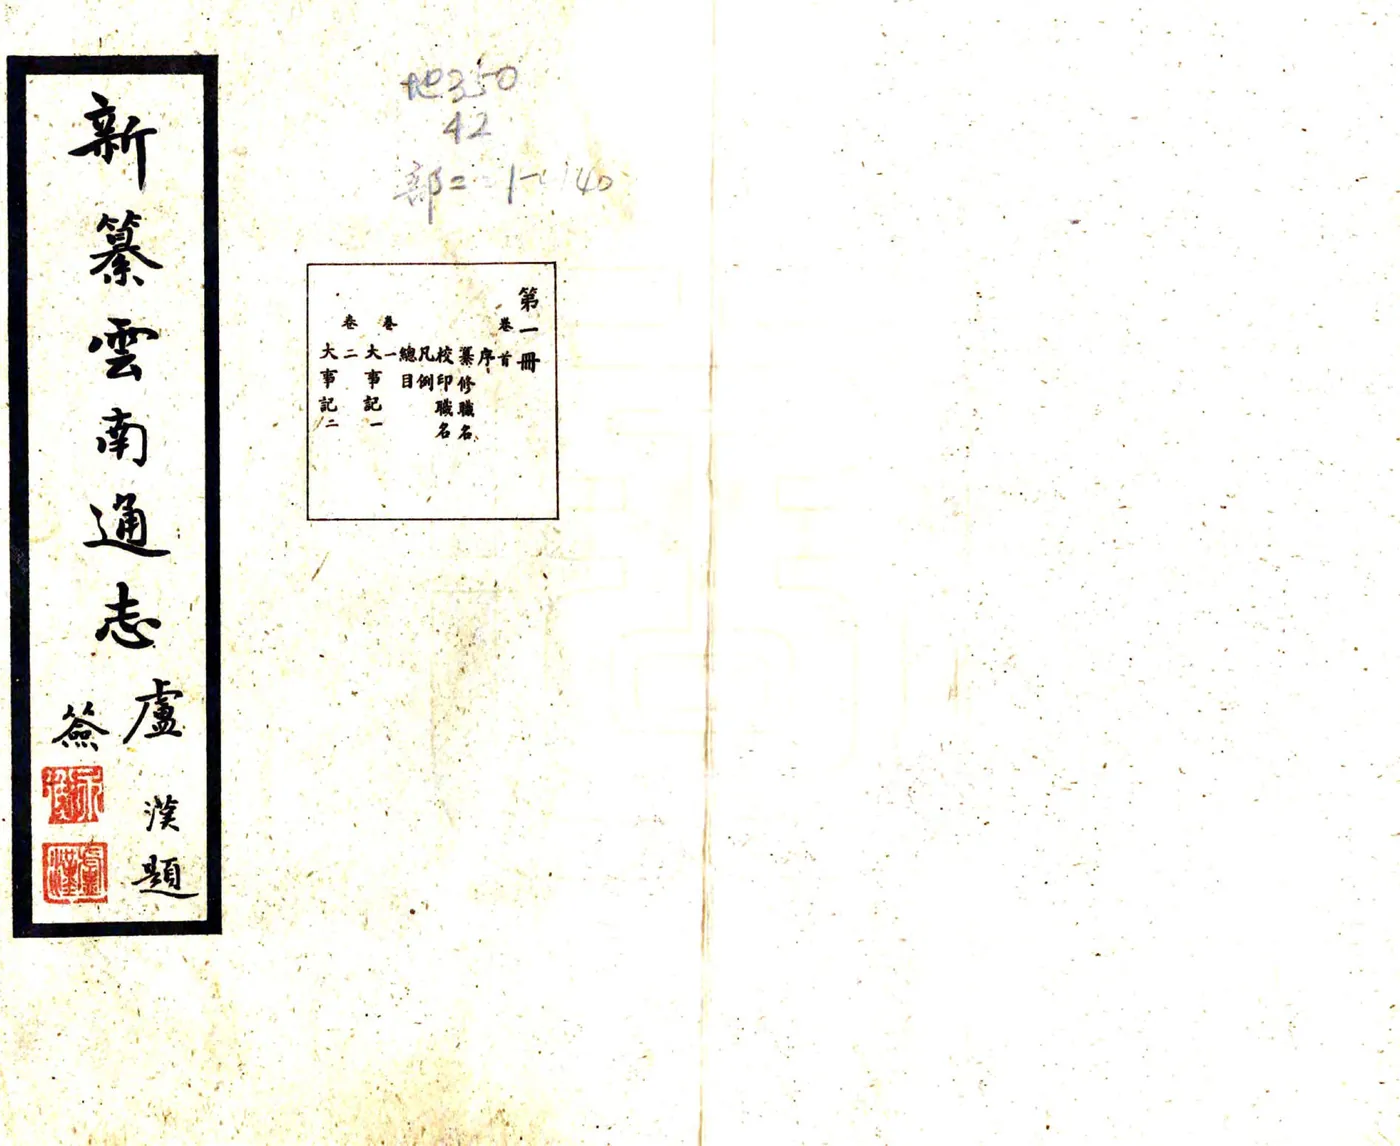 新纂雲南通志
盧漢題
簽
地350
42
第一冊
卷首
序
纂修職名
校印職名
凡例
總目
卷一
大事記一
卷二
大事記二
盧漢